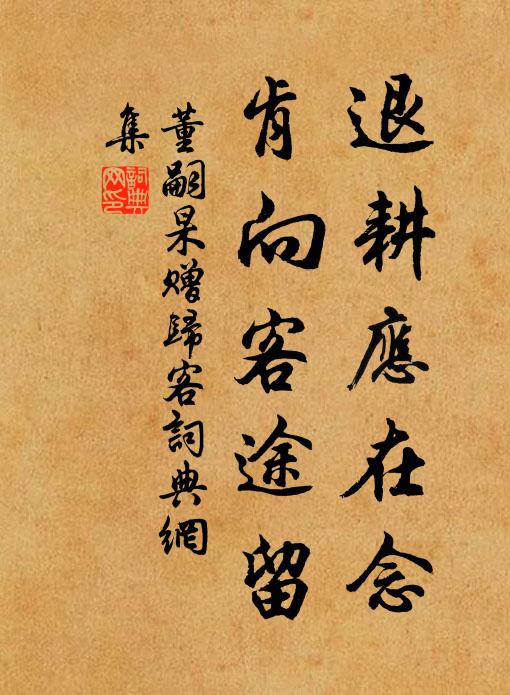 退耕應在念
肯向客途留
董嗣杲贈歸客詞典網
集
詞典
网印